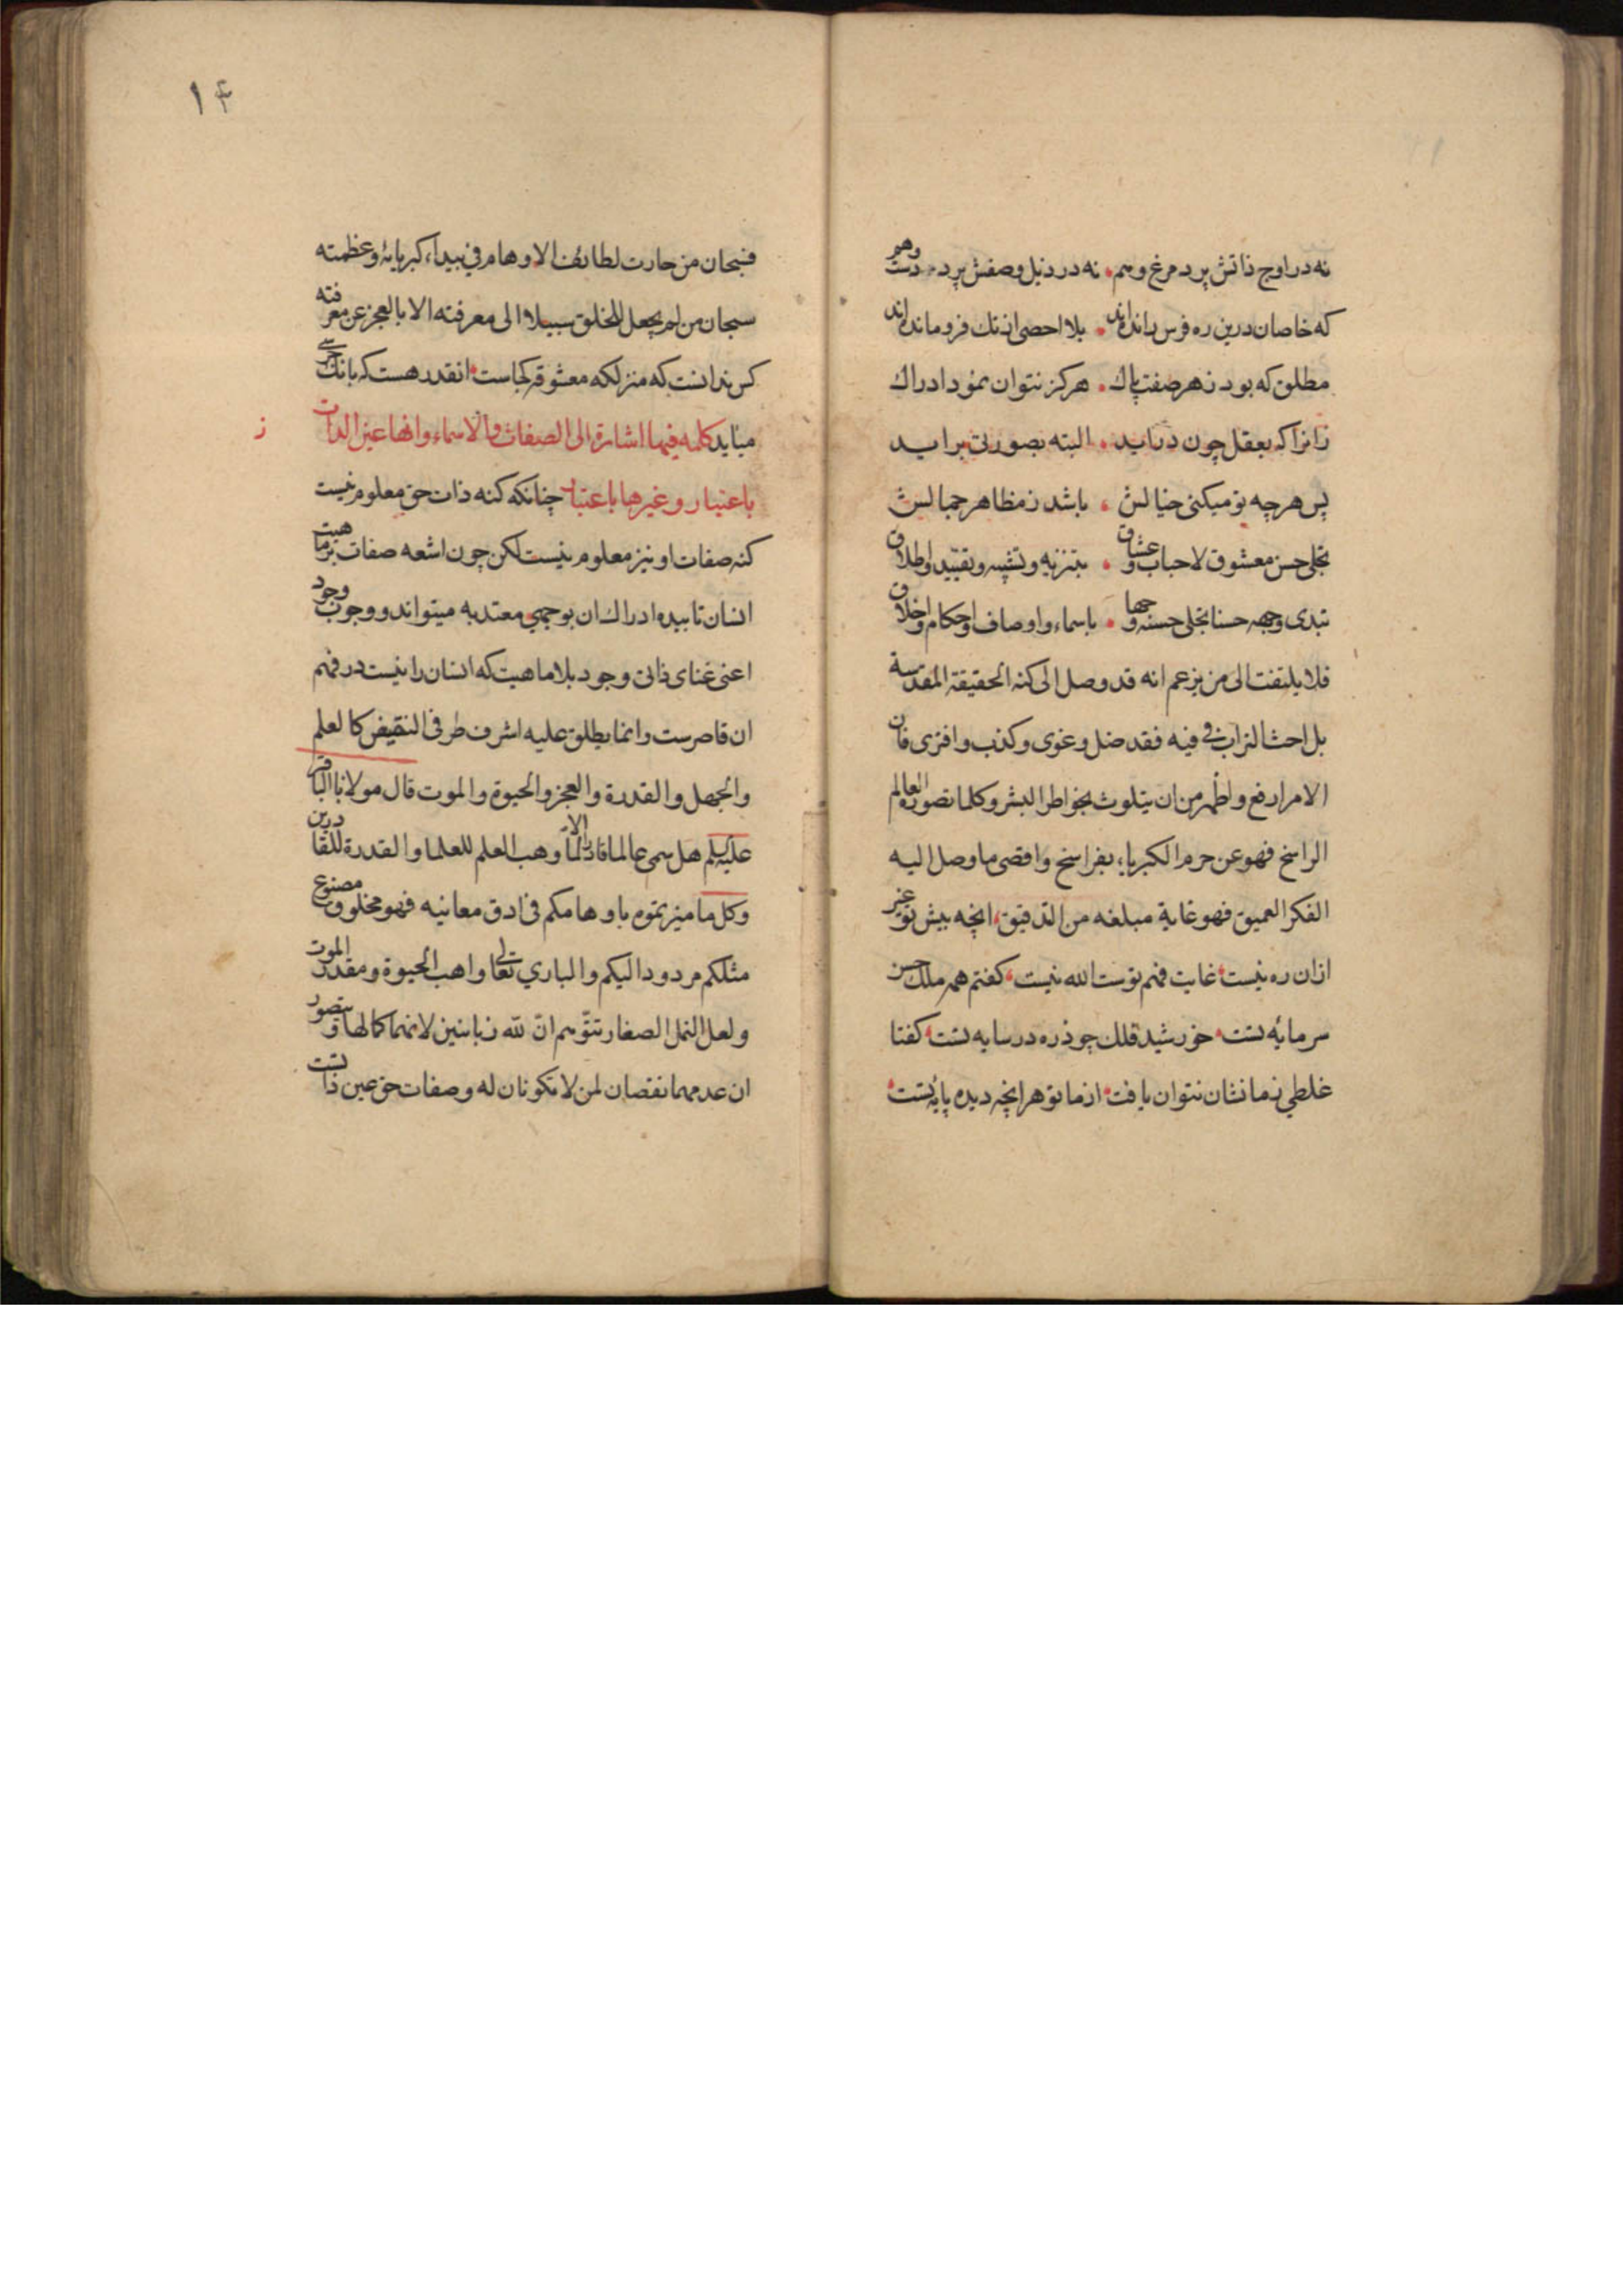 نه در اوج ذاتش پرد مرغ وهم نه در ذیل وصفش پرد دست وهم
که خاصان درین ره فرس رانده‌اند بلا احصی از تک فرومانده‌اند
مطلق که بود ز هر صفت پاک هرکز نتوان نمود ادراک
زانرا که بعقل چون دراید البته بصورتی براید
پس هرچه تو میکنی خیالش باشد ز مظاهر جمالش
تجلی حسن معشوق لاحباب و عشاق بتنزیه و تشبیه و تقیید و اطلاق
تبدی وجهه حسنا تجلی حسنه وجها باسماء و اوصاف و احکام و اخلاق
فلا یلتفت الی من یزعم انه قد وصل الی کنه الحقیقة المقدسة
بل احث التراب فی فیه فقد ضل و غوی و کذب و افتری فان
الامر ارفع و اطهر من ان یتلوث بخواطر البشر و کلما تصوره العالم
الراسخ فهو عن حرم الکبریاء بفراسخ و اقصی ما وصل الیه
الفکر العمیق فهو غایة مبلغه من التدقیق انچه پیش تو غیر
ازان ره نیست غایت فهم توست الله نیست کفتم همه ملک حسن
سرمایه تست خورشید فلک چو ذره در سایه تست کفتا
غلطی ز ما نشان نتوان یافت از ما تو هرانچه دیده پایه تست
۱۴
فسبحان من حارت لطائف الاوهام فی بیداء کبریائه و عظمته
سبحان من لم یجعل للخلق سبیلا الی معرفته الا بالعجز عن معرفته
کس ندانست که منزلکه معشوق کجاست انقدر هست که بانک جرسی
میاید کلمه فیها اشارة الی الصفات و الاسماء و انها عین الذات
ز
باعتبار و غیرها باعتبار چنانکه کنه ذات حق معلوم نیست
کنه صفات او نیز معلوم نیست لکن چون اشعه صفات بر ماهیت
انسان تابیده ادراک ان بوجهی معتد به میتواند و وجوب وجود
اعنی غنای ذاتی وجود بلا ماهیت که انسان را نیست در فهم
ان قاصرست و انما یطلق علیه اشرف طرفی النقیض کالعلم
والجهل والقدرة والعجز والحیوة والموت قال مولانا الباقر
علیه السلم هل سمی عالما قادرا الا لما وهب العلم للعلما والقدرة للقادرین
وکل ما میزتموه باوهامکم فی ادق معانیه فهو مخلوق مصنوع
مثلکم مردود الیکم والباری تعالی واهب الحیوة ومقدر الموت
ولعل النمل الصغار تتوهم ان لله زبانیین لانهما کمالها وتتصور
ان عدمهما نقصان لمن لا تکونان له و صفات حق عین ذاتست